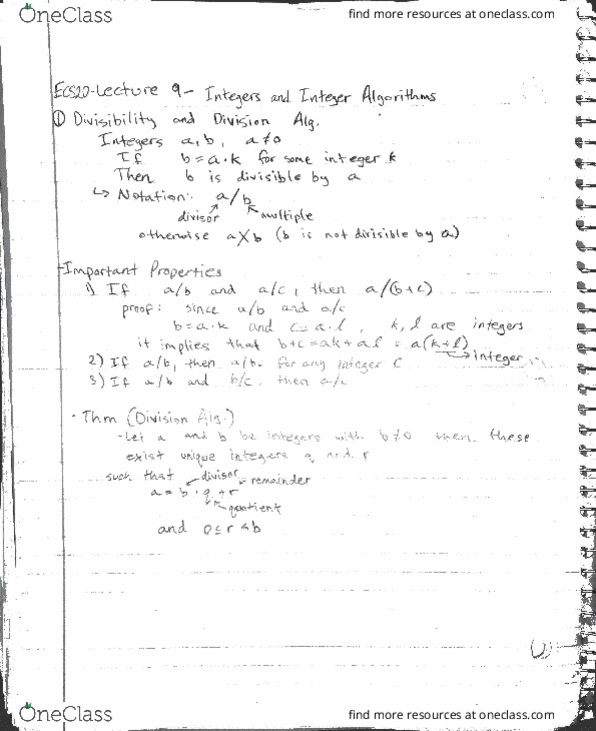 OneClass
find more resources at oneclass.com
ECS20-Lecture 9 - Integers and Integer Algorithms
① Divisibility and Division Alg.
Integers a, b, a≠0
If b = a·k for some integer k
Then b is divisible by a
↳ Notation: a/b
divisor multiple
otherwise a∤b (b is not divisible by a)
Important Properties
1) If a/b and a/c, then a/(b+c)
proof: since a/b and a/c
b = a·k and c = a·l, k, l are integers
it implies that b+c = ak + al = a(k+l)
→ integer
2) If a/b, then a/b for any integer c
3) If a/b and b/c, then a/c
· Thm (Division Alg.)
- Let a and b be integers with b≠0 then these
exist unique integers q and r
such that divisor remainder
a = b·q + r
quotient
and 0 ≤ r < b
OneClass
find more resources at oneclass.com